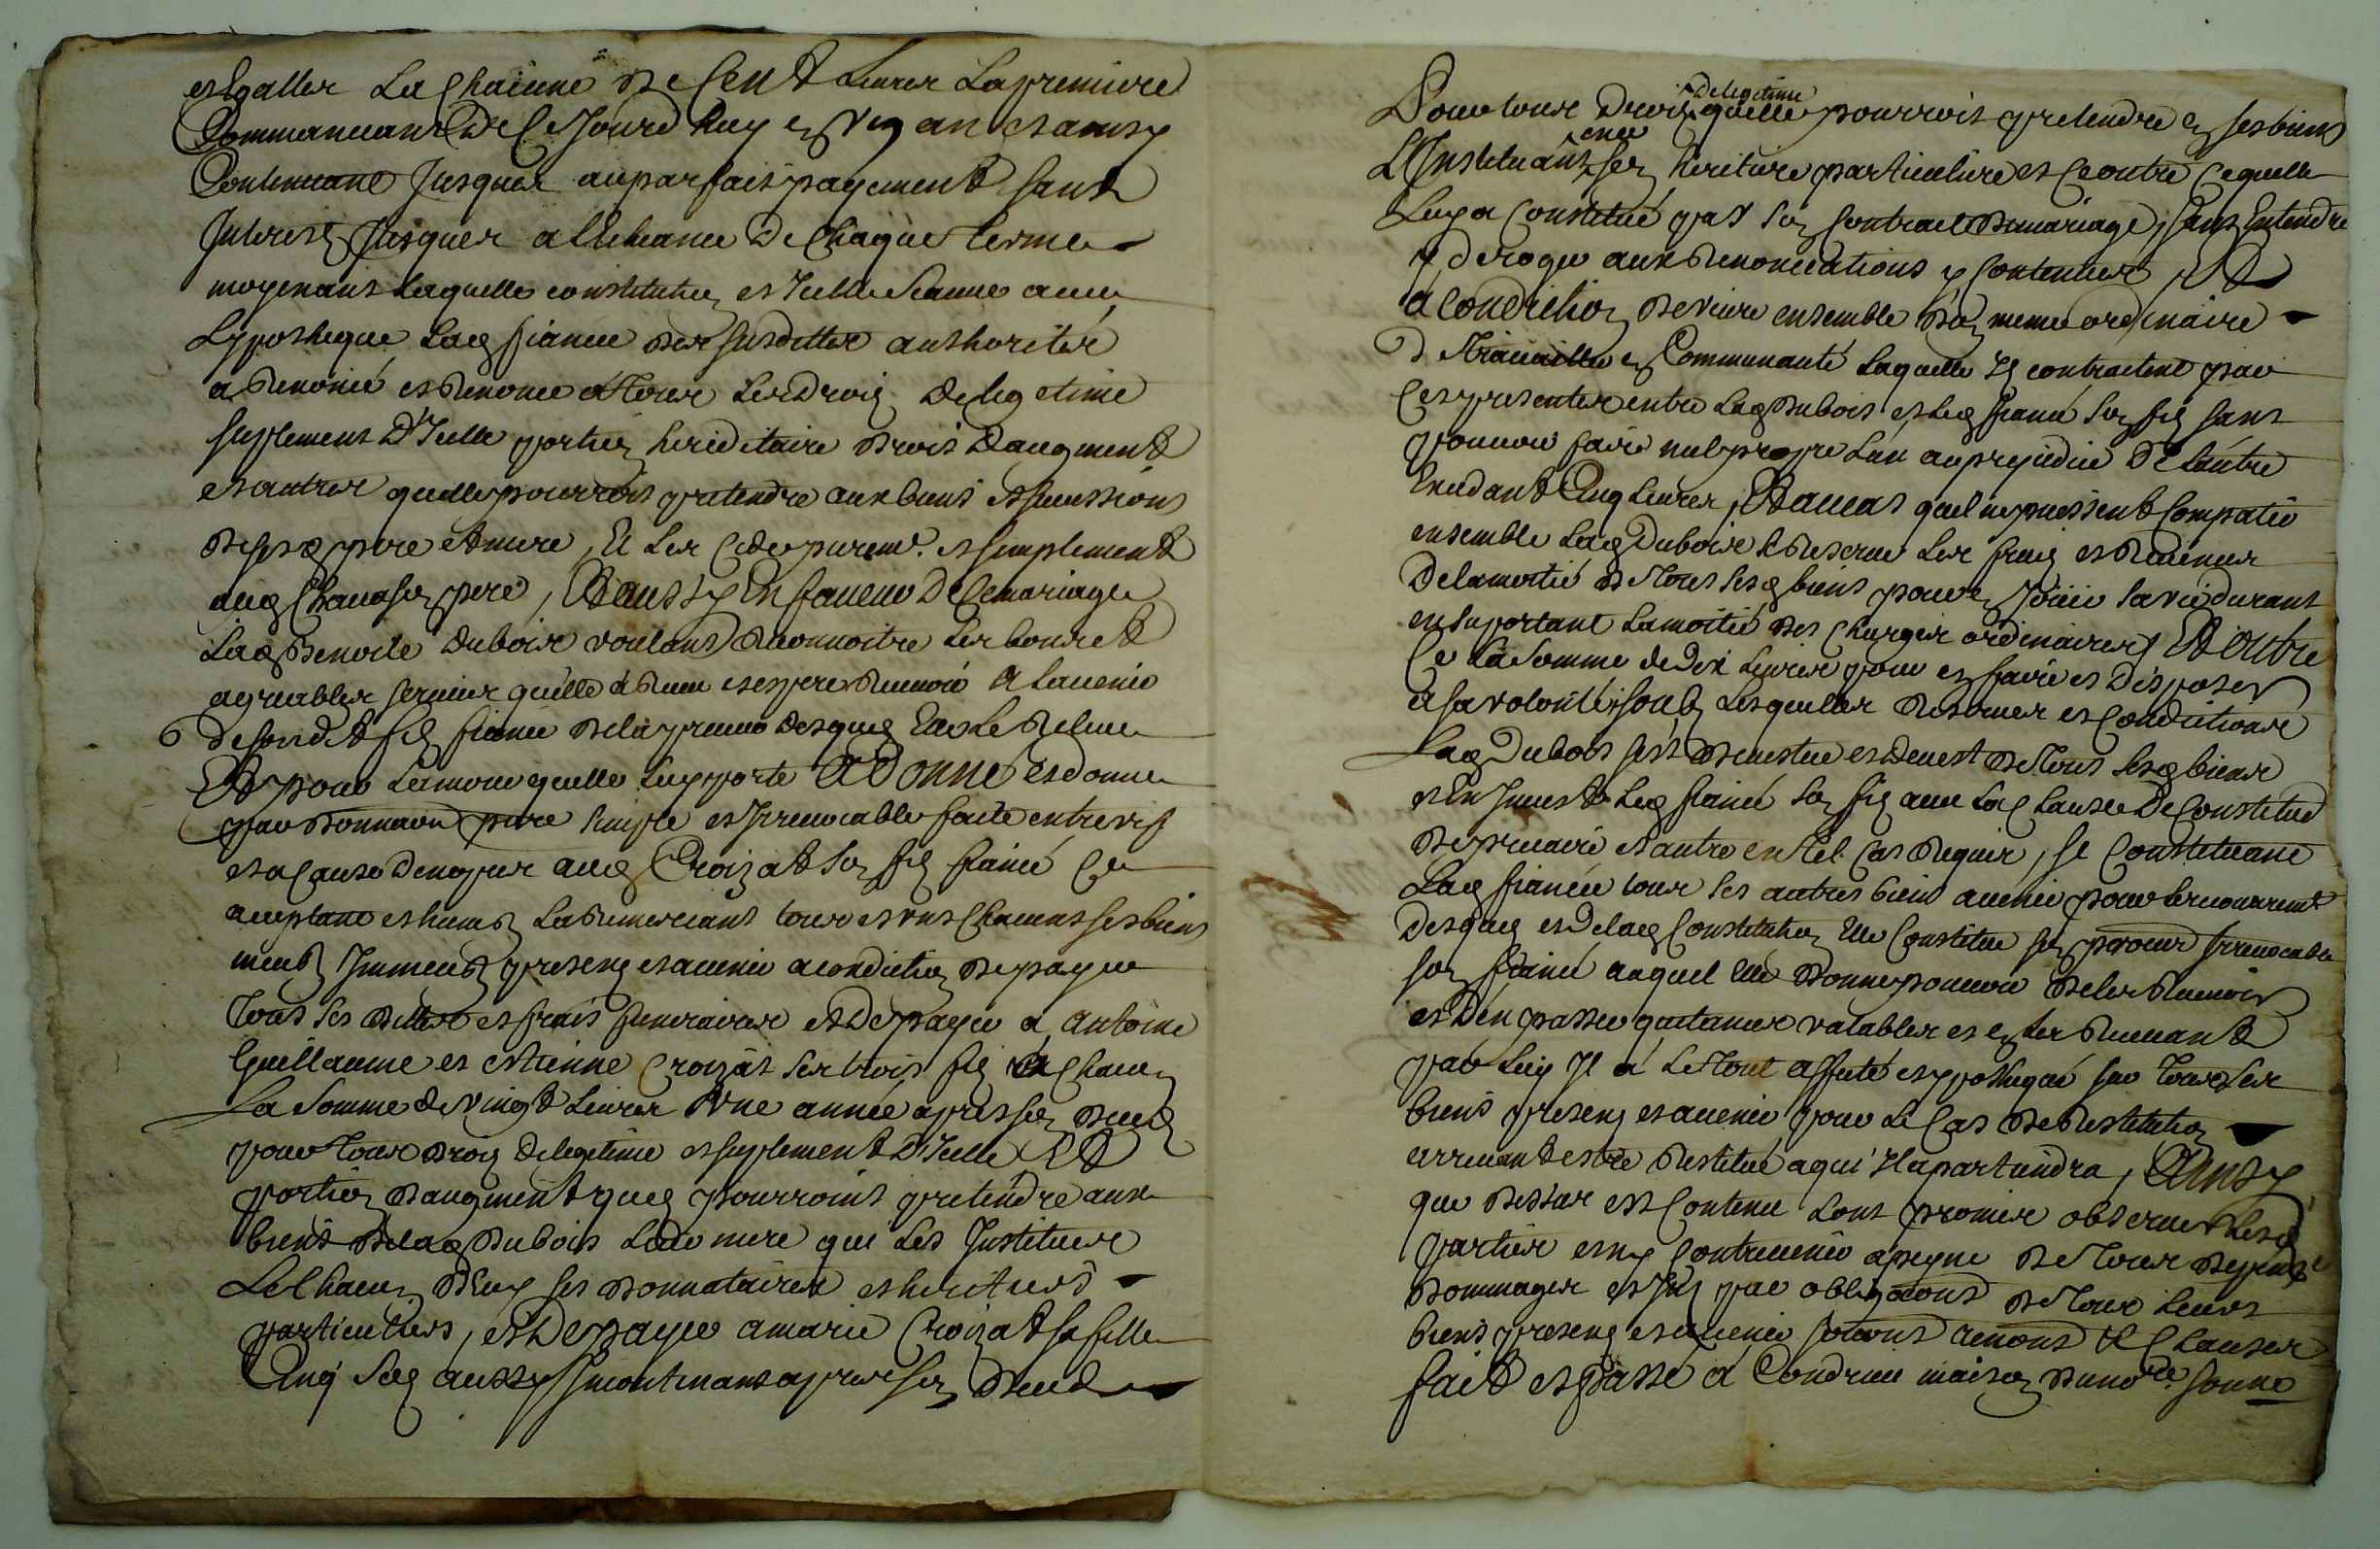 esgalles La chacune de Cent Livres La premiere
Commancant de ce Jourd huy en Vng an et ainsy
Continuant Jusques au parfait payement sans
Interest Jusques a l'echeance de chaque terme
moyenant laquelle constitution et Icelle Jeanne avec
Lypotheque lad fiancee des susdittes authorités
a Renoncé et Renonce a tous ses droitz de legitime
suplement d'Icelle portion hereditaire droit d'augment
et autres quelle pourroit pretendre aux biens et successions
de sesd pere et mere, Et les cede purem.t et simplement
aud son pere, Et aussy En faveur de ce mariage
Lad Benoite dubois voulant Reconnoitre les bons et
agreables services quelle a Receu et espere Recevoir a lavenir
de sond fils fiancé de la preuve desquels Elle Le Releve
Et pour Lamour quelle luy porte a Donné et donne
par donnaon pure simple et Irrevocable faite entre vifs
et a cause de nopces aud Croizat son fils fiancé Ce
acceptant et humb La Remerciant tous et uns chacuns ses biens
meub Immeub presens et avenir a condition de payer
tous ses dettes et frais funeraires et de payer a Antoine
Guillaume et Etienne Croizat ses trois fils a chacun
La Somme de vingt Livres Vne année apres son deceds
pour tous droitz de legitime et suplement d'Icelle Et
portion d'augment quils pourroint pretendre aux
biens de lad Dubois leur mere qui les Institue
Le chacun d'Eux ses donnataires et heritiers
particuliers, et de payer a marie Croizat sa fille
Cinq Sols aussy Incontinant apres son deceds
Pour tous Droitz de legitime quelle pourroit pretendre en ses biens
L'Instituant en ce son heritiere particuliere et ce outre ce quelle
Luy a Constitué par son Contract de mariage, sans Entendre
deroger aux Renonciations y Contenues Et
a Condition de vivre ensemble d'un meme ordinaire
de travailler en Communauté laquelle Ils contractent par
ces presentes entre lad Dubois et led fiancé son fils sans
pouvoir faire nul propre L'un au prejudice de l'autre
Excedant Cinq Livres, Et au cas quil ne puissent Compatir
ensemble Lad Dubois se Reserve les fruits et Revenus
De la moitié de tous sesd biens pour en Jouir sa vie durant
en suportant la moitié des charges ordinaires Et outre
Ce la Somme de dix Livres pour en faire et Disposer
a sa volonté, soub Lesquelles Reserves et Conditions
Lad Dubois s'est devestue et devest de tous sesd biens
et En Investit led fiancé son fils avec la clause De Constitut
de precaire et autre en tel cas Requis, se Constituant
Lad fiancée tous ses autres biens avenir pour le recouvrem.t
desquels et de lad Constitution Elle Constitue son procur Irrevocable
son fiancé auquel Elle Donne pouvoir de les Recevoir
et d'en passer quitances valables et en les Recevant
par luy Il a Le tout affecté et ypothequé sur tous ses
biens presens et avenir pour Le Cas de Restitution
arrivant estre Restitué a qui Il apartiendra, Ainsy
que dessus est Contenu sont promis observer lesd
parties et ny Contrevenir a peyne de tous depens
dommages et Int par obligaons de tous leurs
biens presens et avenir renons et clauses
fait et passé a Condrieu maison du no.re sousne